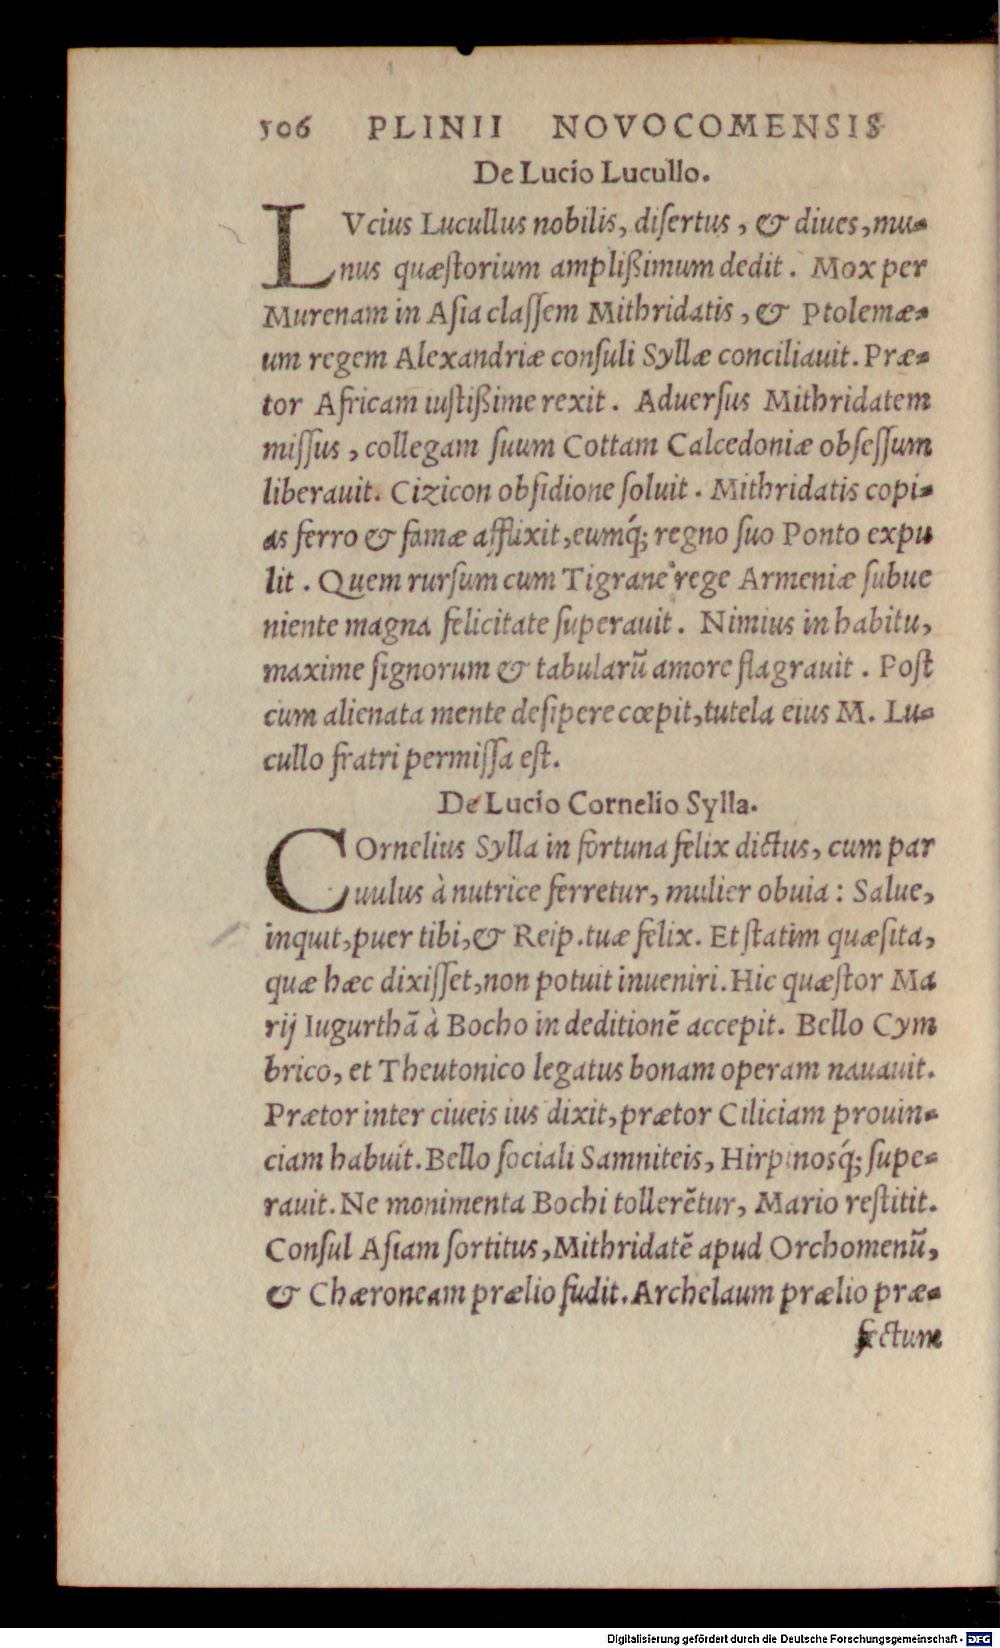 506 PLINII NOVOCOMENSIS
De Lucio Lucullo.
LVcius Lucullus nobilis, diſertus, & diues, mu-
nus quæſtorium amplißimum dedit. Mox per
Murenam in Aſia claſſem Mithridatis, & Ptolemæ-
um regem Alexandriæ conſuli Syllæ conciliauit. Præ-
tor Africam iuſtißime rexit. Aduerſus Mithridatem
miſſus, collegam ſuum Cottam Calcedoniæ obſeſſum
liberauit. Cizicon obſidione ſoluit. Mithridatis copi-
as ferro & famæ afflixit, eumq́; regno ſuo Ponto expu
lit. Quem rurſum cum Tigrane rege Armeniæ ſubue
niente magna felicitate ſuperauit. Nimius in habitu,
maxime ſignorum & tabularũ amore flagrauit. Poſt
cum alienata mente deſipere cœpit, tutela eius M. Lu-
cullo fratri permiſſa eſt.
De Lucio Cornelio Sylla.
COrnelius Sylla in fortuna felix dictus, cum par
uulus à nutrice ferretur, mulier obuia: Salue,
inquit, puer tibi, & Reip. tuæ felix. Et ſtatim quæſita,
quæ hæc dixiſſet, non potuit inueniri. Hic quæſtor Ma
rij Iugurthã à Bocho in deditionẽ accepit. Bello Cym
brico, et Theutonico legatus bonam operam nauauit.
Prætor inter ciueis ius dixit, prætor Ciliciam prouin-
ciam habuit. Bello ſociali Samniteis, Hirpinosq́; ſupe-
rauit. Ne monimenta Bochi tollerẽtur, Mario reſtitit.
Conſul Aſiam ſortitus, Mithridatẽ apud Orchomenũ,
& Chæroneam prælio fudit. Archelaum prælio præ-
fectum
Digitalisierung gefördert durch die Deutsche Forschungsgemeinschaft - DFG